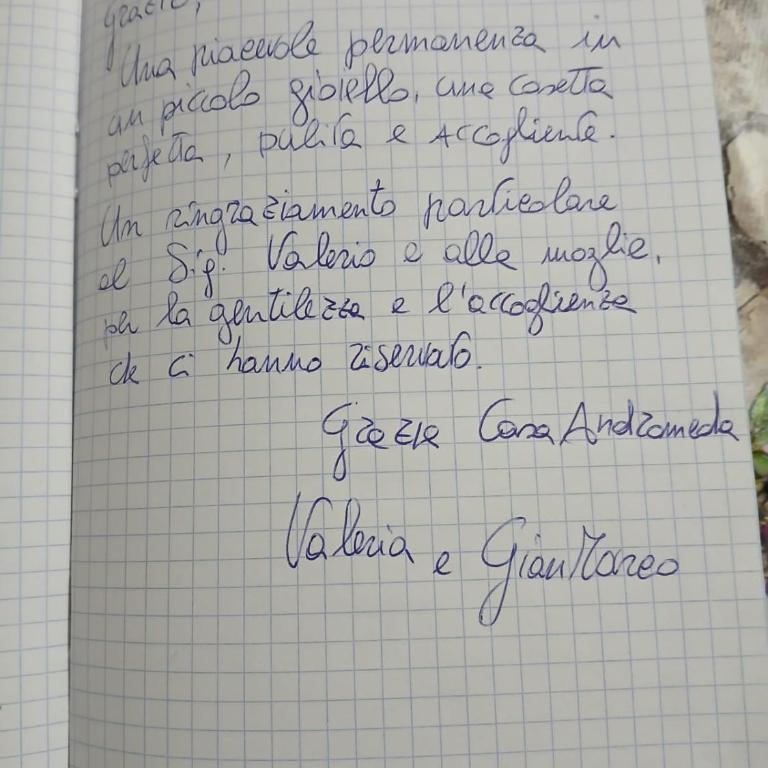 grazie,
Una piacevole permanenza in
un piccolo gioiello, una casetta
perfetta, pulita e accogliente.
Un ringraziamento particolare
al Sig. Valerio e alla moglie,
per la gentilezza e l'accoglienza
che ci hanno riservato.
Grazie Casa Andromeda
Valeria e GianMarco